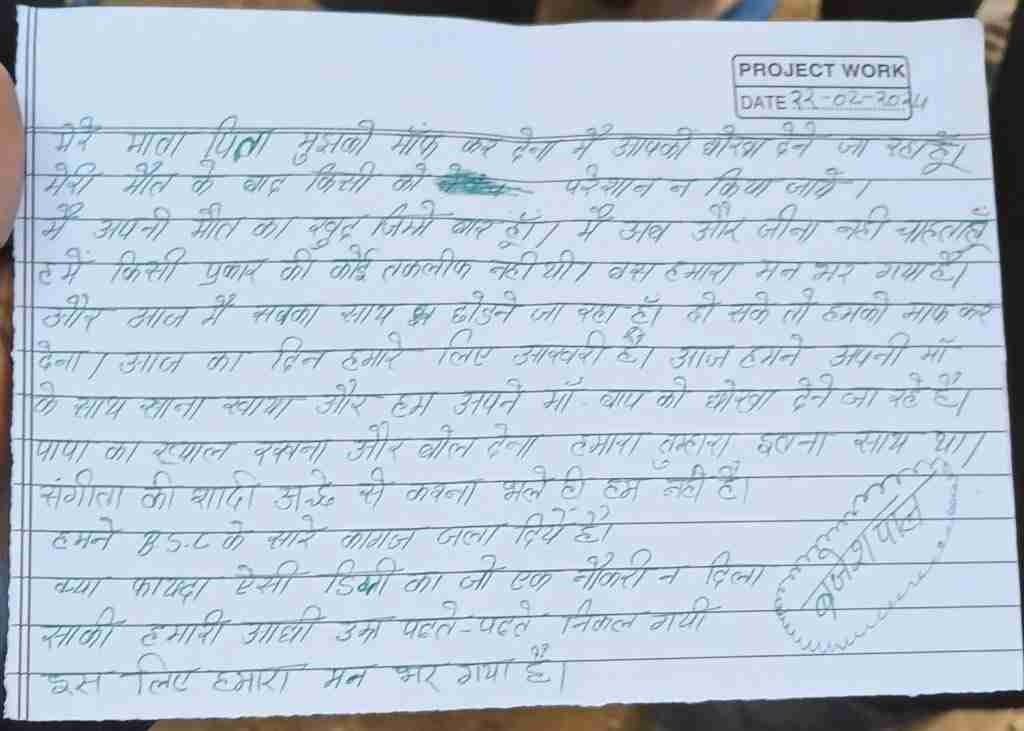 PROJECT WORK
DATE 22-02-2024
मेरे माता पिता मुझको माँफ कर देना मैं आपको धोखा देने जा रहा हूँ।
मेरी मौत के बाद किसी को परेशान न किया जाये।
मैं अपनी मौत का खुद जिम्मे वार हूँ। मैं अब और जीना नहीं चाहता हूँ
हमें किसी प्रकार की कोई तकलीफ नहीं थी। बस हमारा मन भर गया है।
और आज मैं सबका साथ छोडने जा रहा हूँ। हो सके तो हमको माफ कर
देना। आज का दिन हमारे लिए आखरी है। आज हमने अपनी माँ
के साथ खाना खाया और हम अपने माँ-बाप को धोखा देने जा रहे है।
पापा का ख्याल रखना और बोल देना हमारा तुम्हारा इतना साथ था।
संगीता की शादी अच्छे से करना भले ही हम नहीं है।
हमने B.S.C के सारे कागज जला दिये है।
क्या फायदा ऐसी डिग्री का जो एक नौकरी न दिला
साकी हमारी आधी उम्र पढते-पढते निकल गयी
इस लिए हमारा मन भर गया है।
बृजेश पाल